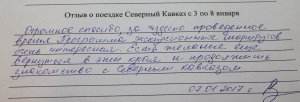 Отзыв о поездке Северный Кавказ с 3 по 8 января
Огромное спасибо за чудно проведенное
время. Программа экскурсионных маршрутов
очень интересная. Есть желание ещё
вернуться в эти края и продолжить
знакомство с Северным Кавказом
07.01.2017 г.